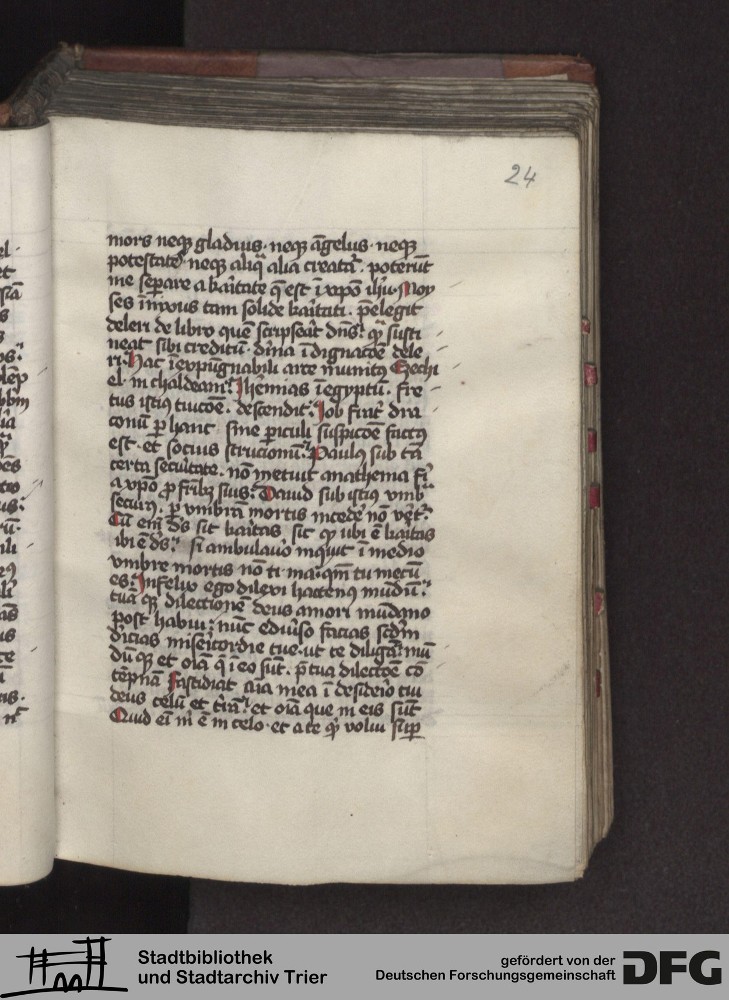 24
mors neqꝫ gladius · neqꝫ āgelus · neqꝫ
potestateˢ neqꝫ aliq̄ alia creatā · poterūt
me seꝑare a kaʼitate que est ī xpō ihū · Moy
ses īnixus tam solide kaʼitati · p̄elegit
deleri de libro quē scripseāt dn̄s · susti
neat sibi creditū · diīna īdignacōe dele
ri · Hac īexpūgnabili arce munitus Ezechi
el · in chaldeam · Iħemias īegyptū · fre
tus istius · descendit · Iob frāt dra
conū ꝑ hanc sine ꝑiculi suspicōe factꝯ
est · et socius strucionū · Paulꝯ sub tā
certa secūtate · nō metuit anathema fiʼ
a xpō ꝓ frībꝫ suis · Dauid sub istiꝯ vmbʼ
securꝯ · ꝑ vmbrā mortis incedeʼ nō
Cū em̄ ds̄ sit kaʼitas sic ubi ē kaʼitas
ibi ē ds̄ · si ambulauo inquit ī medio
vmbre mortis nō ti · ma · qm̄ tu mecū
es · Infelix ego dilexi hactenꝯ mūdū ·
tuā qꝫ dilectionē deus amori mūdano
post habui · nūc ediūso facias scd̄m
diciās misericordie tue · ut te diligā · mū
dū qꝫ et oīā q̄ ī eo sūt · p̄ tua dilectōe cō
tēpnā Fastidiat aīa mea ī desideʼio tui
deus celū et tʼrā · et oīa que in eis sūt
Quid eī m̄ ē in celo · et a te volui suꝑ
Stadtbibliothek
und Stadtarchiv Trier
gefördert von der
Deutschen Forschungsgemeinschaft
DFG